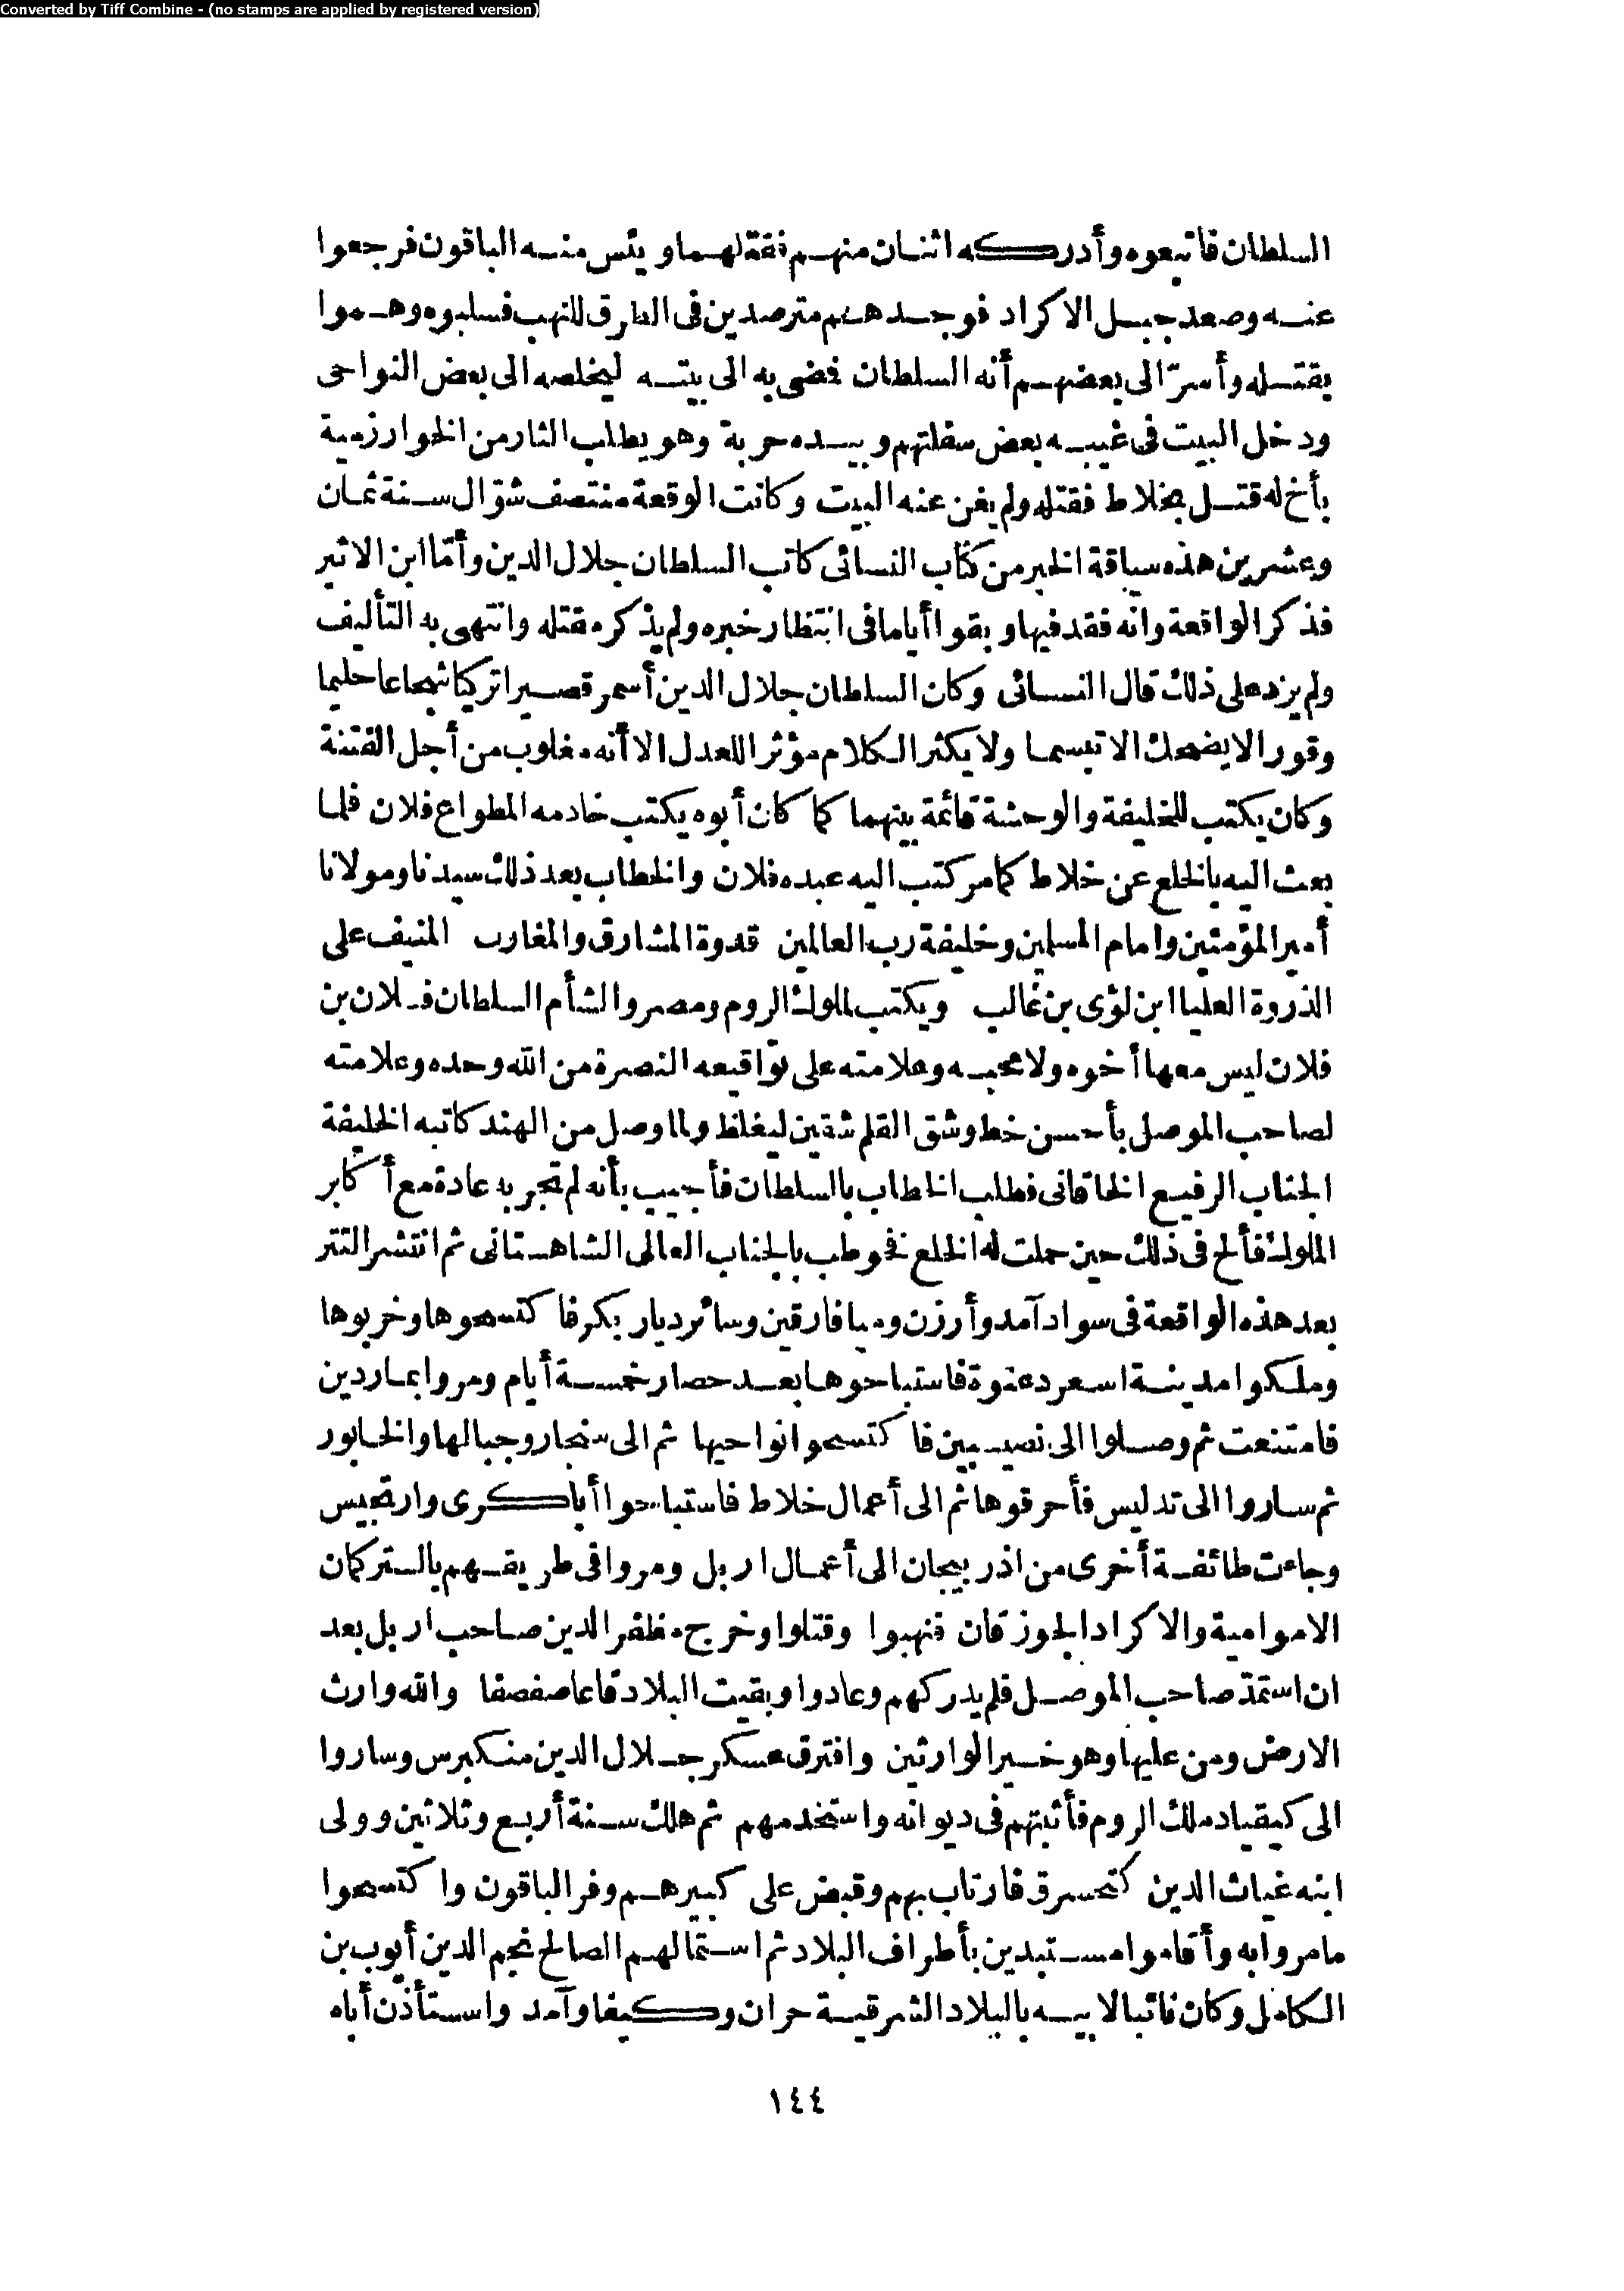 Converted by Tiff Combine - (no stamps are applied by registered version)
السلطان فاتبعوه وأدركه اثنان منهم فقتلهما ويئس منه الباقون فرجعوا
عنه وصعد جبل الاكراد فوجدهم مترصدين فى الطرق للنهب فسلبوه وهموا
بقتله وأسرّ الى بعضهم أنه السلطان فمضى به الى بيته ليخلصه الى بعض النواحى
ودخل البيت فى غيبه بعض سفلتهم وبيده حربة وهو يطلب الثار من الخوارزمية
بأخ له قتل بخلاط فقتله ولم يغن عنه البيت وكانت الوقعة منتصف شوّال سنة ثمان
وعشرين هذه سياقة الخبر من كتاب النسائى كاتب السلطان جلال الدين وأمّا ابن الاثير
فذكر الواقعة وانه فقد فيها وبقوا أياما فى انتظار خبره ولم يذكر مقتله وانتهى به التأليف
ولم يزد على ذلك قال النسائى وكان السلطان جلال الدين أسمر قصيرا تركيا شجاعا حليما
وقورا لا يضحك الا تبسما ولا يكثر الكلام مؤثرا للعدل الا أنه مغلوب من أجل الفتنة
وكان يكتب للخليفة والوحشة قائمة بينهما كما كان أبوه يكتب خادمه المطواع فلان فلما
بعث اليه بالخلع عن خلاط كما مر كتب اليه عبده فلان والخطاب بعد ذلك سيدنا ومولانا
أمير المؤمنين وامام المسلمين وخليفة رب العالمين قدوة المشارق والمغارب المنيف على
الذروة العليا ابن لؤى بن غالب ويكتب لملوك الروم ومصر والشأم السلطان فلان بن
فلان ليس معها أخوه ولا محبه وعلامته على تواقيعه النصرة من الله وحده وعلامته
لصاحب الموصل بأحسن خط وشق القلم شقين ليغلظ ولما وصل من الهند كاتبه الخليفة
الجناب الرفيع الخاقانى فطلب الخطاب بالسلطان فأجيب بأنه لم تجر به عادة مع أكابر
الملوك فألح فى ذلك حين حملت له الخلع فخوطب بالجناب العالى الشاهستانى ثم انتشر التتر
بعد هذه الواقعة فى سواد آمد وأرزن وميافارقين وسائر ديار بكر فاكتسحوها وخربوها
وملكوا مدينة اسعرد عنوة فاستباحوها بعد حصار خمسة أيام ومروا بماردين
فامتنعت ثم وصلوا الى نصيبين فاكتسحوا نواحيها ثم الى سنجار وجبالها والخابور
ثم ساروا الى تدليس فأحرقوها ثم الى أعمال خلاط فاستباحوا أباكرى وارتجيس
وجاءت طائفة أخرى من اذربيجان الى أعمال اربل ومروا فى طريقهم بالتركمان
الاموامية والاكراد الجوزقان فنهبوا وقتلوا وخرج مظفر الدين صاحب اربل بعد
ان استمدّ صاحب الموصل فلم يدركهم وعادوا وبقيت البلاد قاعا صفصفا والله وارث
الارض ومن عليها وهو خير الوارثين وافترق عسكر جلال الدين منكبرس وساروا
الى كيقباد ملك الروم فأثبتهم فى ديوانه واستخدمهم ثم هلك سنة أربع وثلاثين وولى
ابنه غياث الدين كنخسرو فارتاب بهم وقبض على كبيرهم وفر الباقون واكتسحوا
ما مروا به وأقاموا مستبدين بأطراف البلاد ثم استمالهم الصالح نجم الدين أيوب بن
الكامل وكان نائبا لابيه بالبلاد الشرقية حران وكيفا وآمد واستأذن أباه
١٤٤